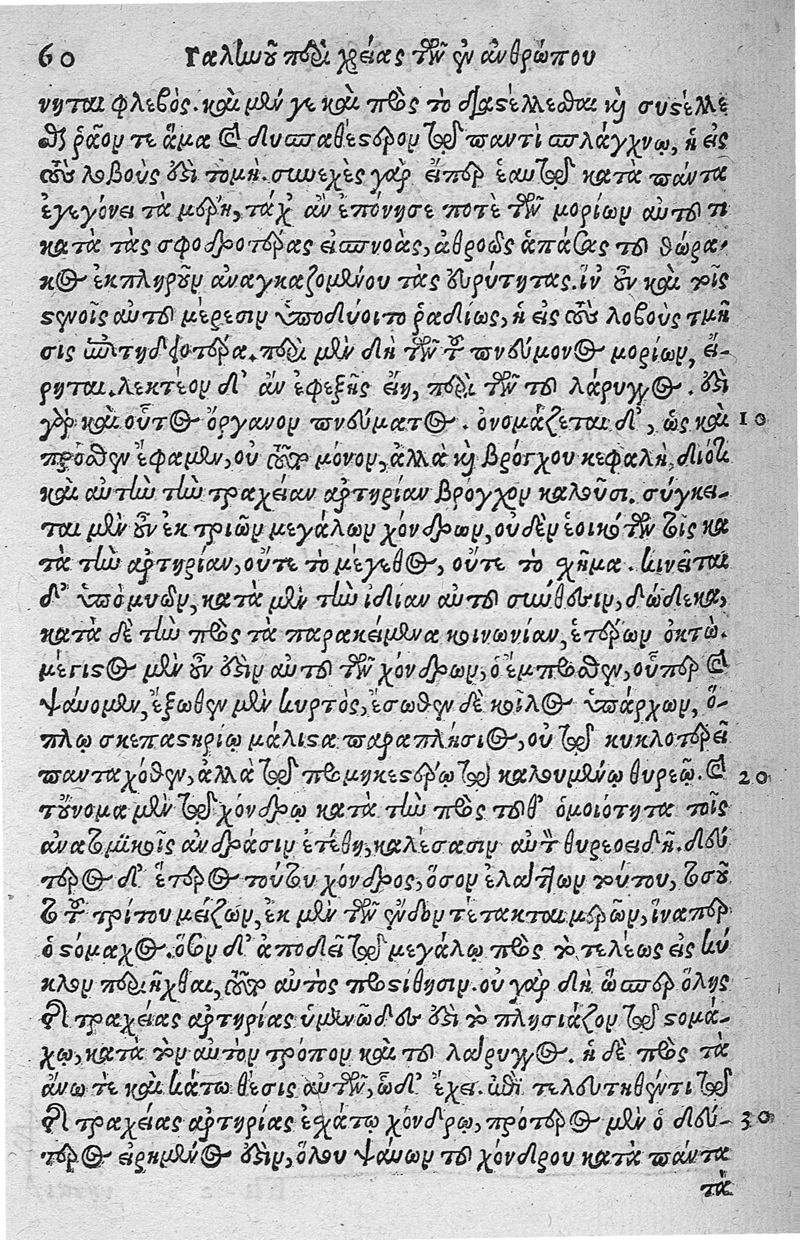 60 Γαληνοῦ περὶ χρείας τῶν ἐν ἀνθρώπου
νηται φλεβός. καὶ μὲν γε καὶ πρὸς τὸ διαστέλλεσθαι καὶ συστέλλε
σθαι ῥᾷον τε ἅμα καὶ δυσπαθέστερον τῷ παντὶ σπλάγχνῳ, ἡ εἰς
τοὺς λοβοὺς ἐστὶ τομὴ. συνεχὲς γὰρ εἴπερ ἑαυτῷ κατὰ πάντα
ἐγεγόνει τὰ μέρη, τάχ' ἂν ἐπόνησε ποτὲ τῶν μορίων αὐτοῦ τι
κατὰ τὰς σφοδροτέρας εἰσπνοὰς, ἀθροῶς ἁπάσας τοῦ θώρα-
κος ἐκπληροῦν ἀναγκαζομένου τὰς εὐρύτητας. ἵν' οὖν καὶ τοῖς
στενοῖς αὐτοῦ μέρεσιν ὑποδύοιτο ῥαδίως, ἡ εἰς τοὺς λοβοὺς τμῆ
σις ἐπιτηδειοτέρα. περὶ μὲν δὴ τῶν τοῦ πνεύμονος μορίων, εἴ-
ρηται. λεκτέον δ' ἂν ἐφεξῆς εἴη, περὶ τῶν τοῦ λάρυγγος. ἐστὶ
γὰρ καὶ οὗτος ὄργανον πνεύματος. ὀνομάζεται δ', ὡς καὶ 10
πρόσθεν ἔφαμεν, οὐ τοῦτο μόνον, ἀλλὰ καὶ βρόγχου κεφαλὴ, διότι
καὶ αὐτὴν τὴν τραχεῖαν ἀρτηρίαν βρόγχον καλοῦσι. σύγκει-
ται μὲν οὖν ἐκ τριῶν μεγάλων χόνδρων, οὐδὲν ἐοικὸς τῶν τοῖς κα
τὰ τὴν ἀρτηρίαν, οὔτε τὸ μέγεθος, οὔτε τὸ σχῆμα. κινεῖται
δ' ὑπὸ μυῶν, κατὰ μὲν τὴν ἰδίαν αὐτοῦ σύνθεσιν, δώδεκα,
κατὰ δὲ τὴν πρὸς τὰ παρακείμενα κοινωνίαν, ἑτέρων ὀκτώ.
μέγιστος μὲν οὖν ἐστὶν αὐτοῦ τῶν χόνδρων, ὁ ἔμπροσθεν, οὗπερ καὶ
ψάυομεν, ἔξωθεν μὲν κυρτὸς, ἔσωθεν δὲ κοῖλος ὑπάρχων, ὅ-
πλῳ σκεπαστηρίῳ μάλιστα παραπλήσιος, οὐ τῷ κυκλοτερεῖ
πανταχόθεν, ἀλλὰ τῷ προμηκεστέρῳ τῷ καλουμένῳ θυρεῷ. καὶ 20
τοὔνομα μὲν τῷ χόνδρῳ κατὰ τὴν πρὸς τοῦθ' ὁμοιότητα τοῖς
ἀνατομικοῖς ἀνδράσιν ἐτέθη, καλέσασιν αὐτὸν θυρεοειδῆ. δεύ
τερος δ' ἕτερος τούτου χόνδρος, ὅσον ἐλάττων τούτου, τοσοῦ
το τοῦ τρίτου μείζων, ἐκ μὲν τῶν ἔνδον τέτακται μερῶν, ἵναπερ
ὁ στόμαχος. ὅσον δ' ἀποδεῖ τῷ μεγάλῳ πρὸς τὸ τελέως εἰς κύ
κλον περιῆχθαι, τοῦτο αὐτὸς προστίθησιν. οὐ γὰρ δὴ ὥσπερ ὅλης
τῆς τραχείας ἀρτηρίας ὑμενῶδες ἐστὶ τὸ πλησιάζον τῷ στομά-
χῳ, κατὰ τὸν αὐτὸν τρόπον καὶ τοῦ λάρυγγος. ἡ δὲ πρὸς τὰ
ἄνω τὲ καὶ κάτω θέσις αὐτῶν, ὧδ' ἔχει. ἐπὶ τελευτηθέντι τῷ
τῆς τραχείας ἀρτηρίας ἐσχάτῳ χόνδρῳ, πρότερος μὲν ὁ δεύ- 30
τερος εἰρημένος ἐστὶν, ὅλου ψάυων τοῦ χόνδρου κατὰ πάντα
τὰ